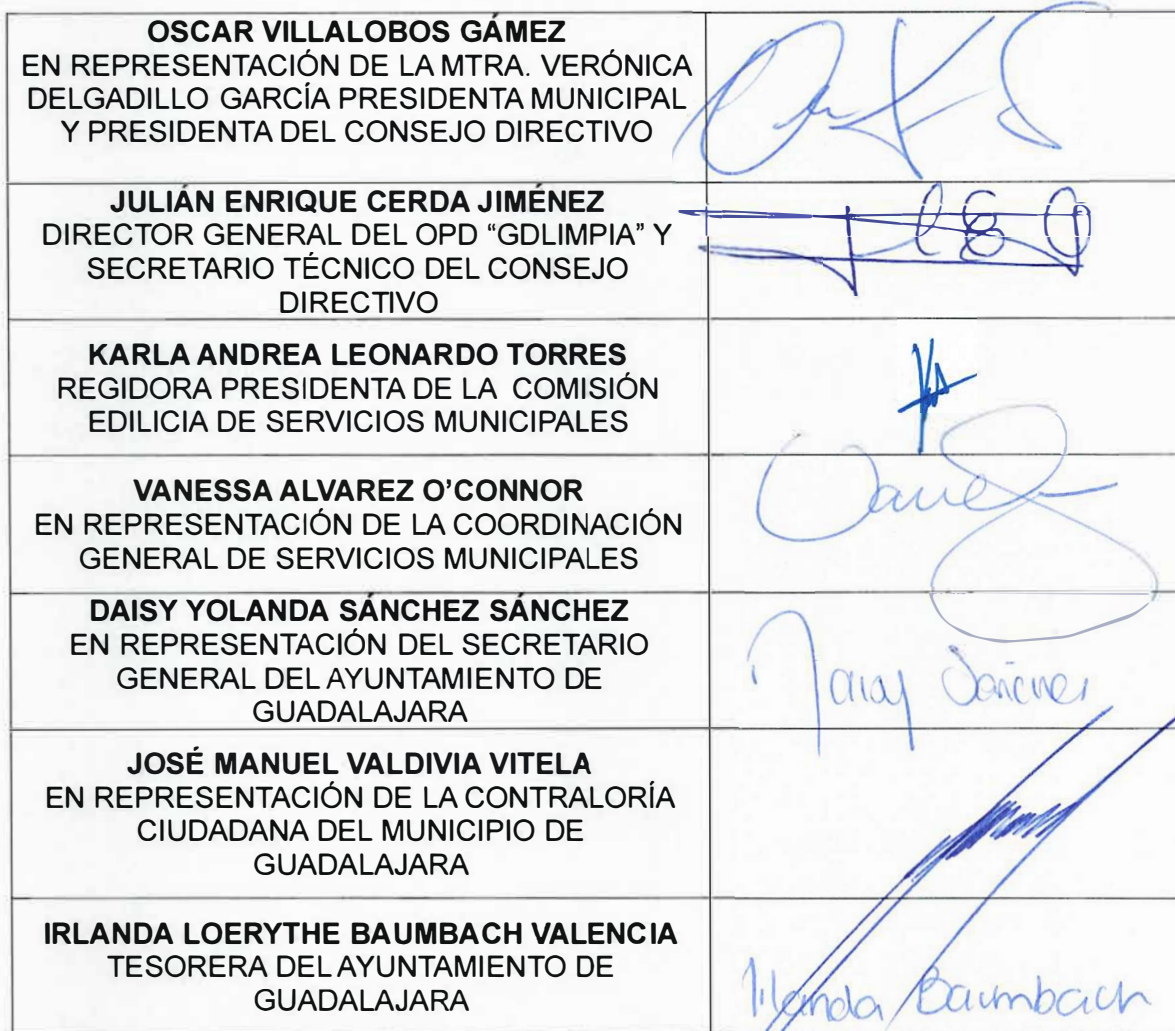 OSCAR VILLALOBOS GÁMEZ
EN REPRESENTACIÓN DE LA MTRA. VERÓNICA
DELGADILLO GARCÍA PRESIDENTA MUNICIPAL
Y PRESIDENTA DEL CONSEJO DIRECTIVO
JULIÁN ENRIQUE CERDA JIMÉNEZ
DIRECTOR GENERAL DEL OPD “GDLIMPIA” Y
SECRETARIO TÉCNICO DEL CONSEJO
DIRECTIVO
KARLA ANDREA LEONARDO TORRES
REGIDORA PRESIDENTA DE LA COMISIÓN
EDILICIA DE SERVICIOS MUNICIPALES
VANESSA ALVAREZ O’CONNOR
EN REPRESENTACIÓN DE LA COORDINACIÓN
GENERAL DE SERVICIOS MUNICIPALES
DAISY YOLANDA SÁNCHEZ SÁNCHEZ
EN REPRESENTACIÓN DEL SECRETARIO
GENERAL DEL AYUNTAMIENTO DE
GUADALAJARA
Daisy Sánchez
JOSÉ MANUEL VALDIVIA VITELA
EN REPRESENTACIÓN DE LA CONTRALORÍA
CIUDADANA DEL MUNICIPIO DE
GUADALAJARA
IRLANDA LOERYTHE BAUMBACH VALENCIA
TESORERA DEL AYUNTAMIENTO DE
GUADALAJARA
Irlanda Baumbach